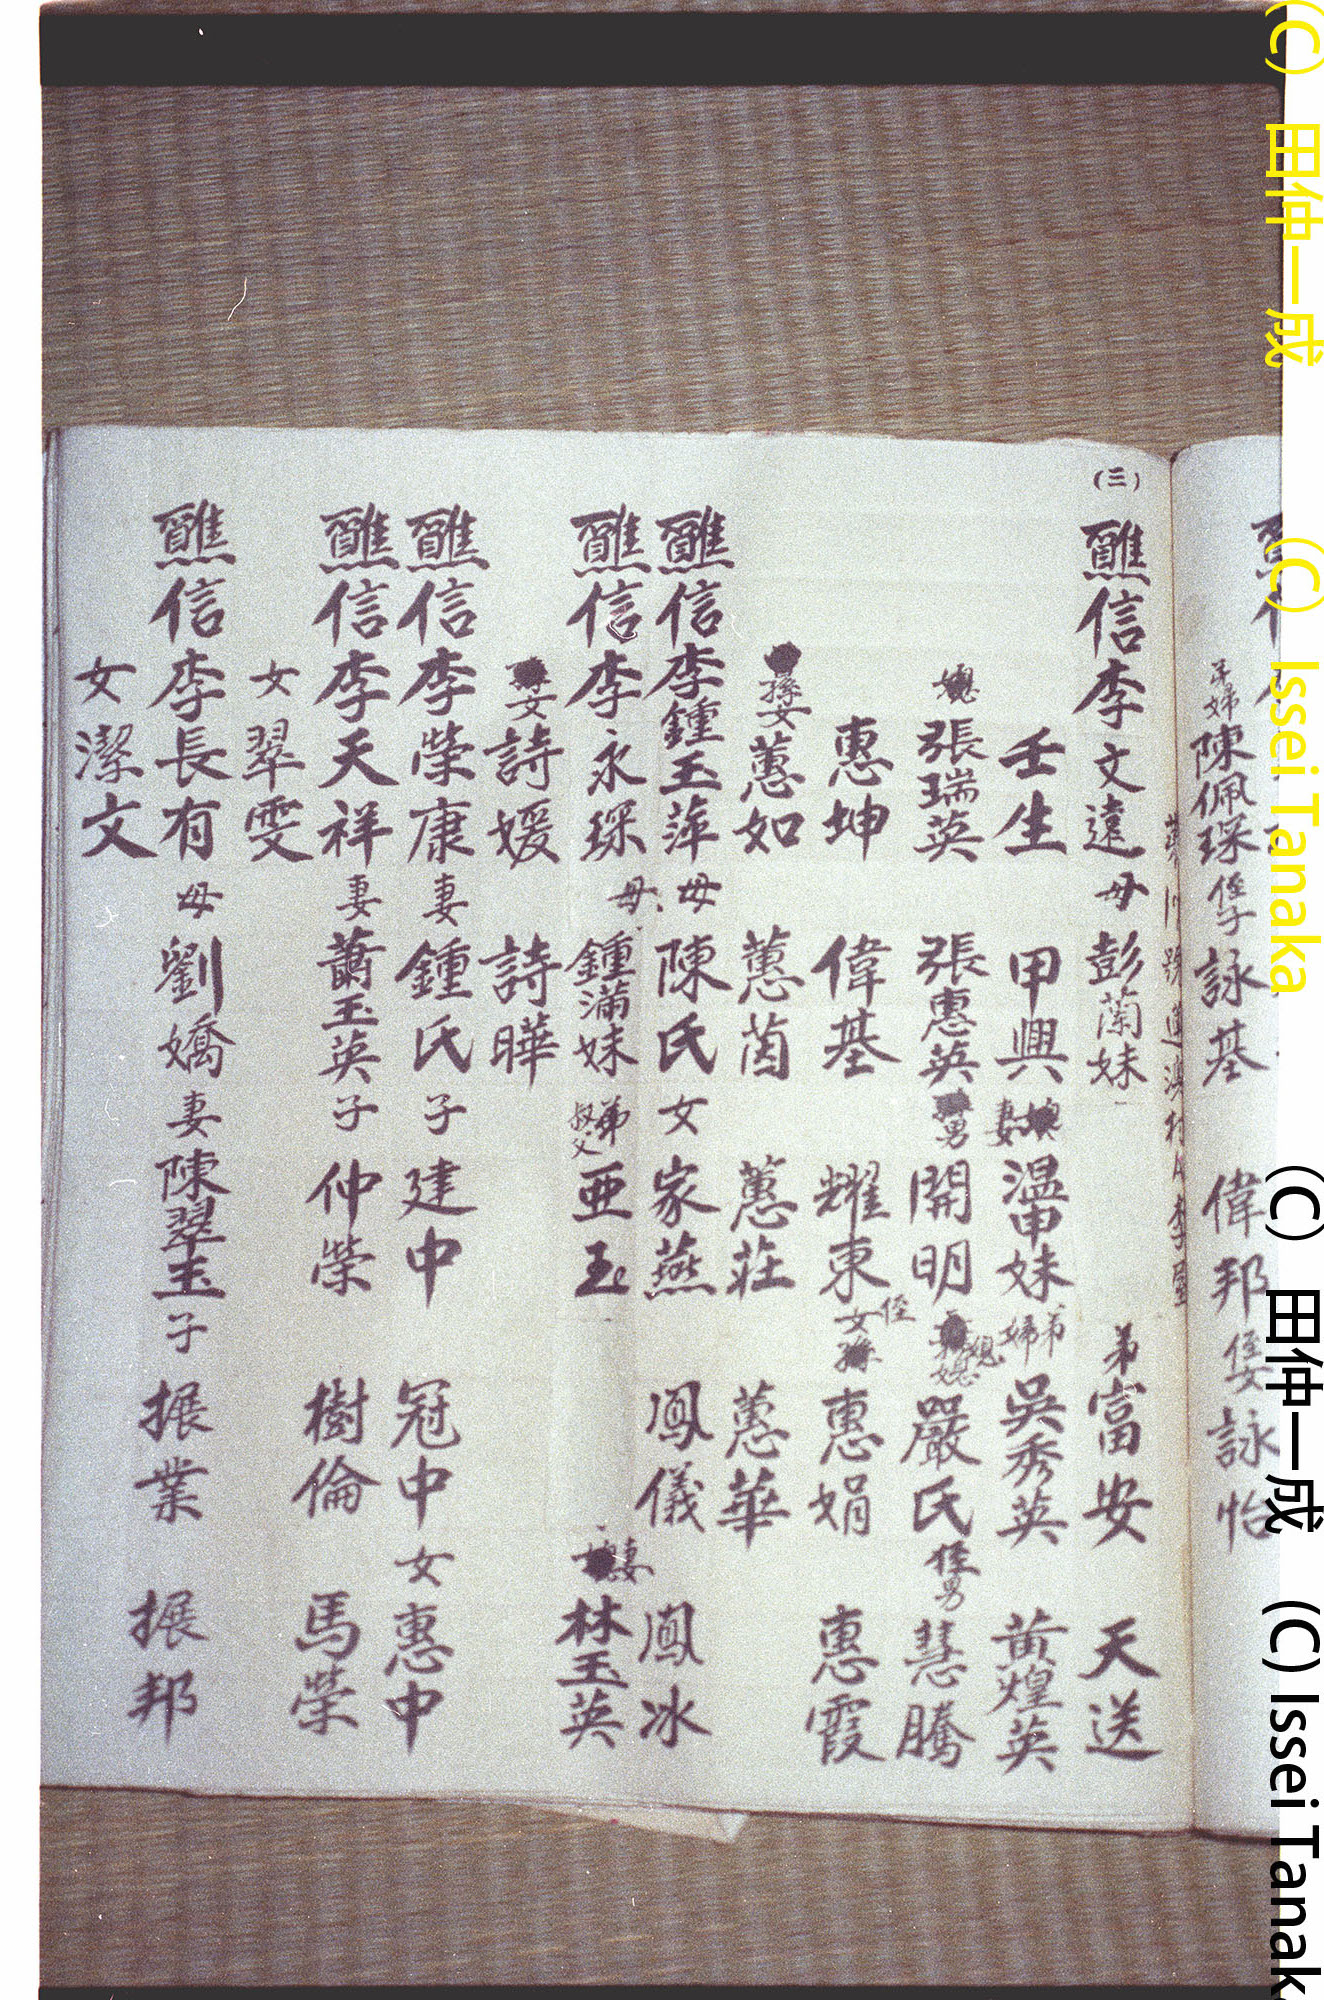 弟婦陳佩琛 侄子詠基 偉邦 侄女詠怡
(三)
醮信李文遠 母彭蘭妹 弟富安 天送
壬生 甲興 妻溫甲妹 弟婦吳秀英 黃煌英
媳張瑞英 張惠英 男開明 媳嚴氏 侄男慧騰
惠坤 偉基 耀東 侄女惠娟 惠霞
孫女蕙如 蕙茵 蕙莊 蕙華
醮信李鍾玉萍 母陳氏 女家燕 鳳儀 鳳冰
醮信李永琛 母鍾滿妹 叔父亜玉 妻林玉英
女詩媛 詩曄
醮信李榮康 妻鍾氏 子建中 冠中 女惠中
醮信李天祥 妻蕭玉英 子仲榮 樹倫 馬榮
女翠雯
醮信李長有 母劉嬌 妻陳翠玉 子振業 振邦
女潔文
(C) 田仲一成 (C) Issei Tanaka
(C) 田仲一成 (C) Issei Tanak